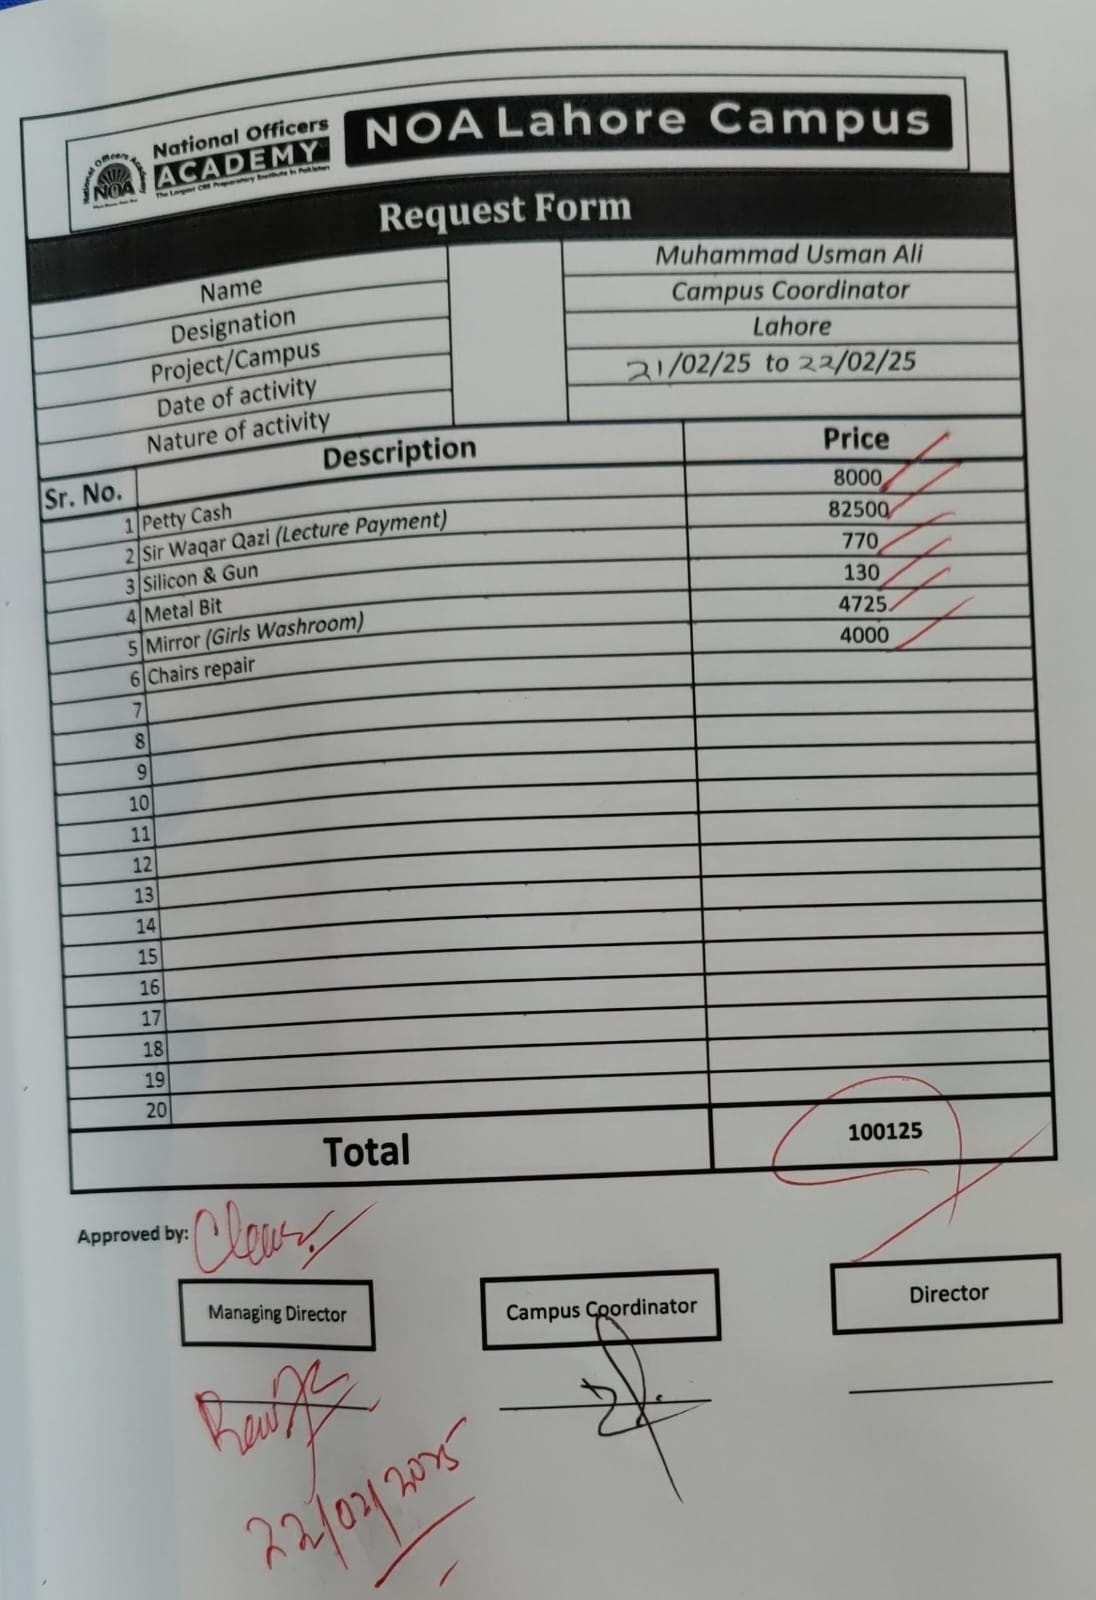 National Officers
ACADEMY
The Largest CSS Preparatory Institute in Pakistan
National Officers Academy
NOA
NOA Lahore Campus
Request Form
Name Muhammad Usman Ali
Designation Campus Coordinator
Project/Campus Lahore
Date of activity 21/02/25 to 22/02/25
Nature of activity
Sr. No. Description Price
1 Petty Cash 8000
2 Sir Waqar Qazi (Lecture Payment) 82500
3 Silicon & Gun 770
4 Metal Bit 130
5 Mirror (Girls Washroom) 4725
6 Chairs repair 4000
7
8
9
10
11
12
13
14
15
16
17
18
19
20
Total 100125
Approved by: Clear
Managing Director Campus Coordinator Director
22/02/2025